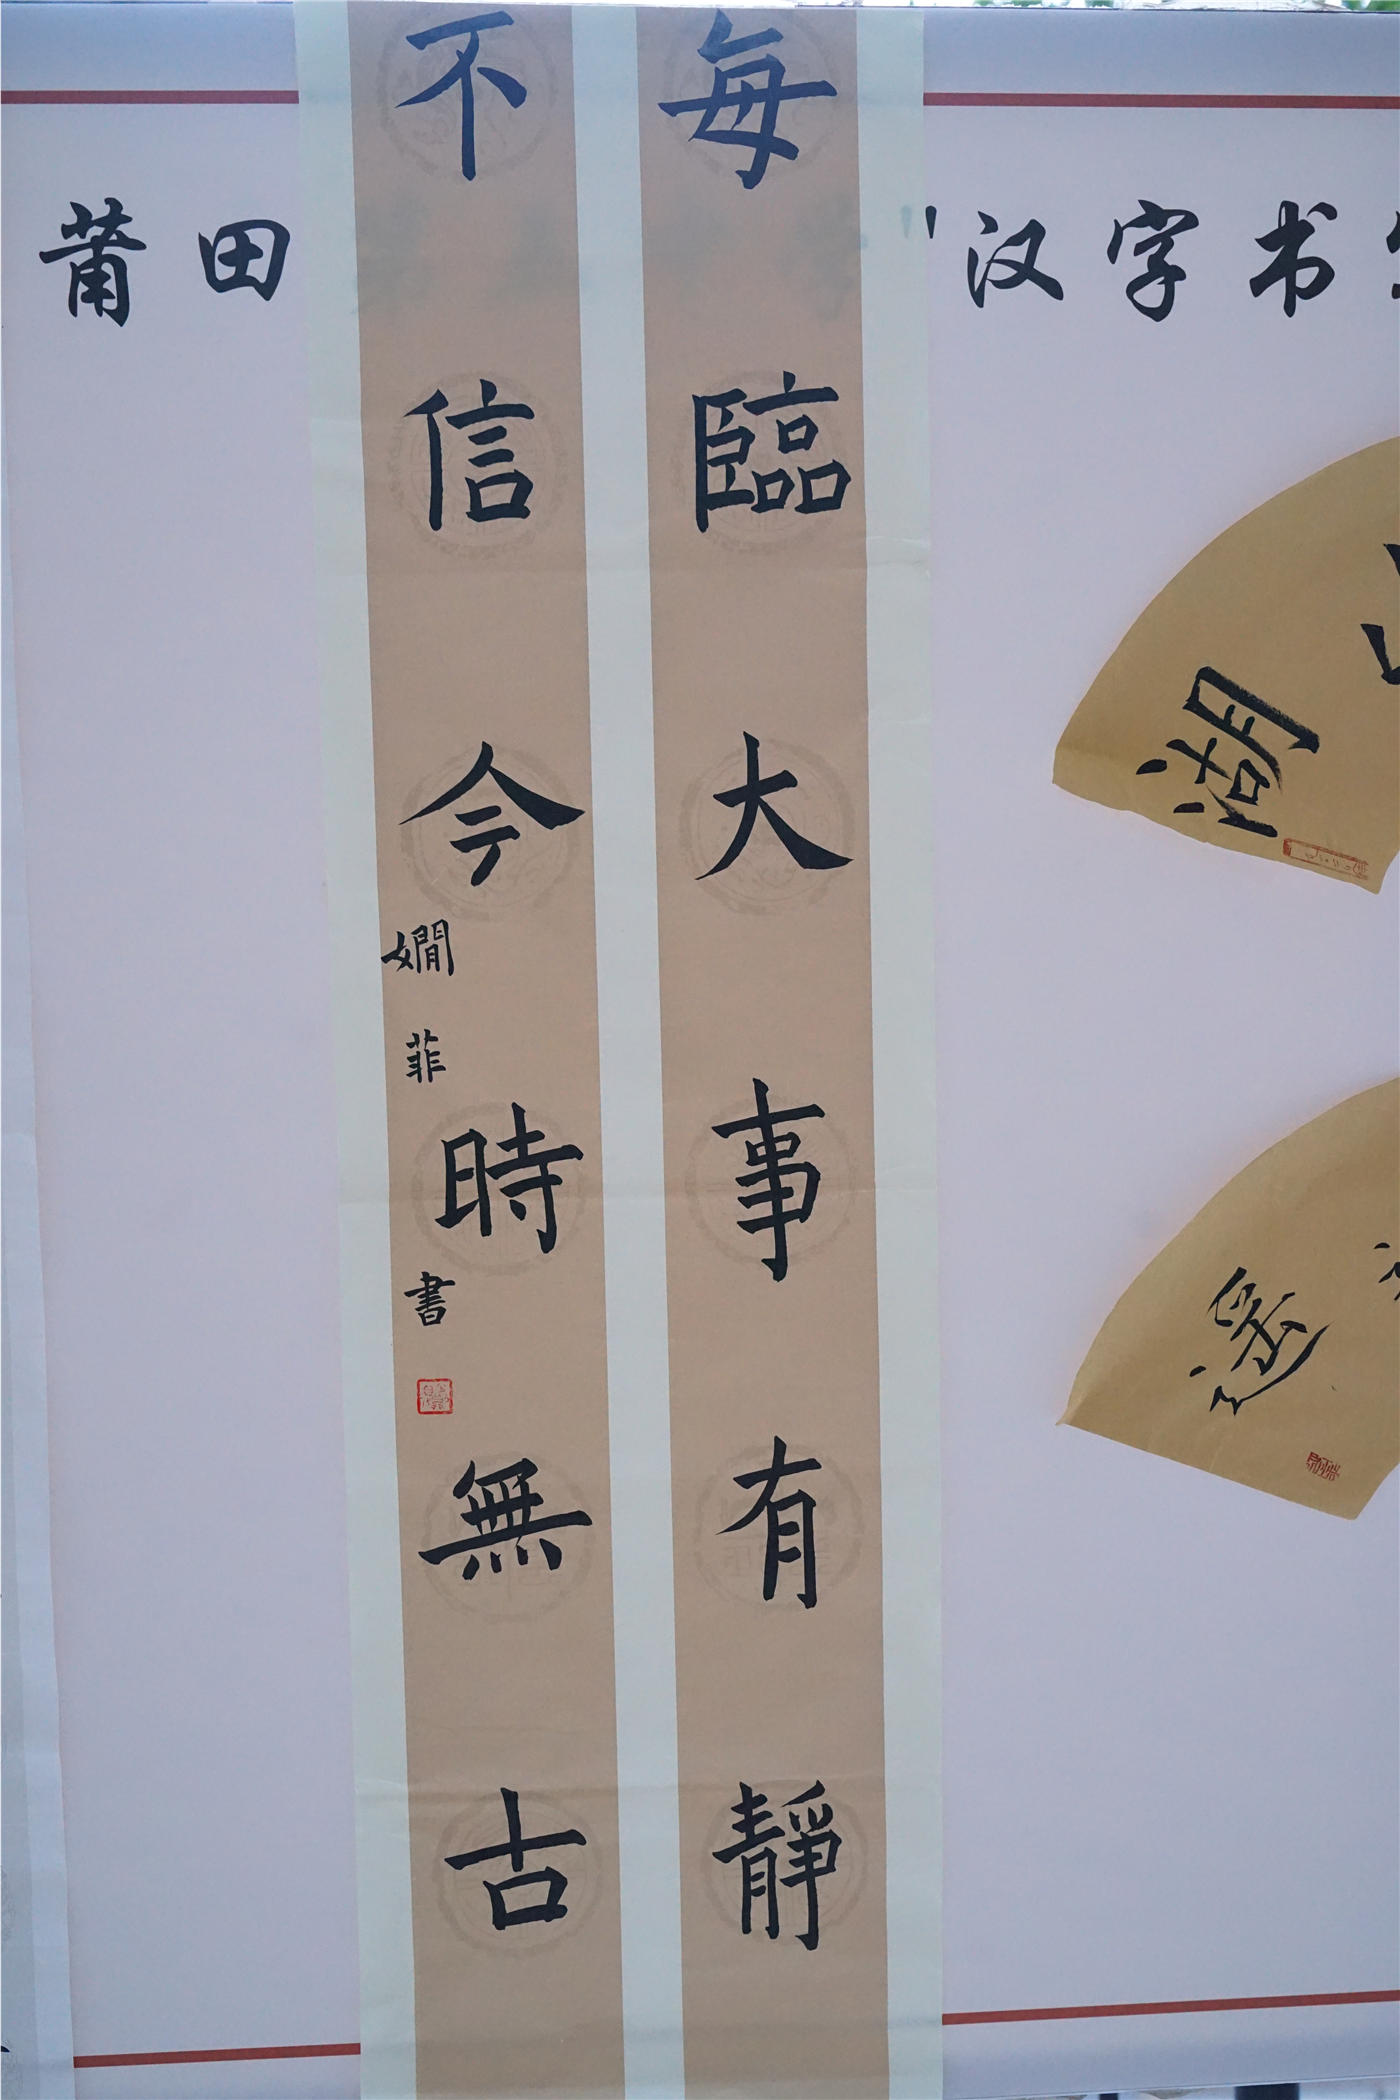 莆田
"汉字书
每臨大事有靜
不信今時無古
嫺菲書
湖
遥